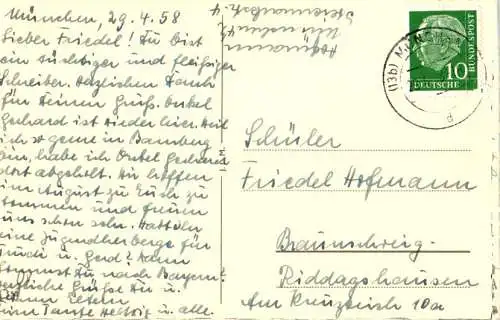 München, 29.4.58
Lieber Friedel! Du bist
ein tüchtiger und fleißiger
Schreiber. Herzlichen Dank
für Deinen Gruß. Onkel
Gerhard ist wieder hier. Weil
ich so gerne in Bamberg
bin, habe ich Onkel Gerhard
dort abgeholt. Wir hoffen
im August zu Euch zu
kommen und freuen
uns schon sehr. Habt Ihr
eine Jugendherberge für
u. Gerd? Wann
kommst Du nach Bayern?
Herzliche Grüße Dir u.
Deinen Eltern
Deine Tante Hedwig u. alle.
Hofmann
München
DEUTSCHE
BUNDESPOST
10
(13b) MÜNCH
d
Schüler
Friedel Hofmann
Braunschweig-
Riddagshausen
Am Kreuzteich 10a